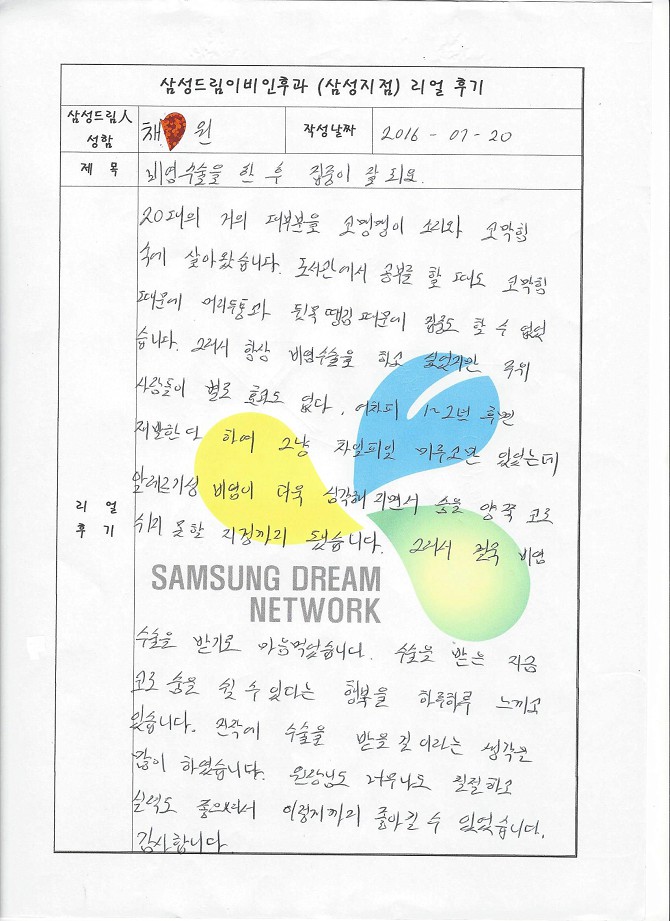 삼성드림이비인후과 (삼성지점) 리얼 후기
삼성드림人
성함
채 원
작성날짜
2016 - 07 - 20
제 목
비염수술을 한 후 집중이 잘 되요.
20대의 거의 대부분을 코맹맹이 소리와 코막힘
속에 살아왔습니다. 도서관에서 공부를 할 때도 코막힘
때문에 머리두통과 뒷목 땡김 때문에 집중도 할 수 없었
습니다. 그래서 항상 비염수술을 하고 싶었지만 주위
사람들이 별로 효과도 없다. 어차피 1~2년 후면
재발한다 하여 그냥 차일피일 미루고만 있었는데
알레르기성 비염이 더욱 심각해지면서 숨을 양쪽 코로
쉬지 못할 지경까지 됐습니다. 그래서 결국 비염
리 얼
후 기
SAMSUNG DREAM
NETWORK
수술을 받기로 마음먹었습니다. 수술을 받은 지금
코로 숨을 쉴 수 있다는 행복을 하루하루 느끼고
있습니다. 진작에 수술을 받을 걸 이라는 생각을
많이 하였습니다. 원장님도 너무나도 친절하고
실력도 좋으셔서 이렇게까지 좋아질 수 있었습니다.
감사합니다.